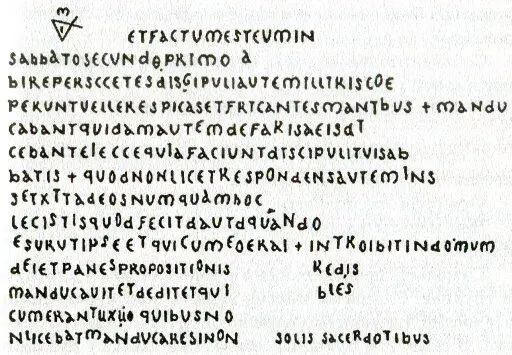 ETFACTUMESTEUMIN
SABBATOSECUNDOPRIMO A
BIREPERSCCETESDISGIPULIAUTEMILLIRISCOE
PERUNTUELLERESPICASETFRICANTESMANIBUS + MANDU
CABANTQUIDAMAUTEMDEFARISAEISDT
CEBANTEIECCEQUIAFACIUNTDISCIPULITUISAB
BATIS + QUODNONLICETRESPONDENSAUTEMINS
SETXTTADEOSNUMQUAMHOC
LECISTISQUODFECITDAUTDQUANDO
ESURUTIPSEETQUICUMEOERAI + INTROIBITINDOMUM
DEIETPANESPROPOSITIONIS REDIS
MANDUCAUITETDEDITETQUI BLES
CUMERANTUXUO QUIBUSNO
NLICEBATMANDUCARESINON SOLIS SACERDOTIBUS